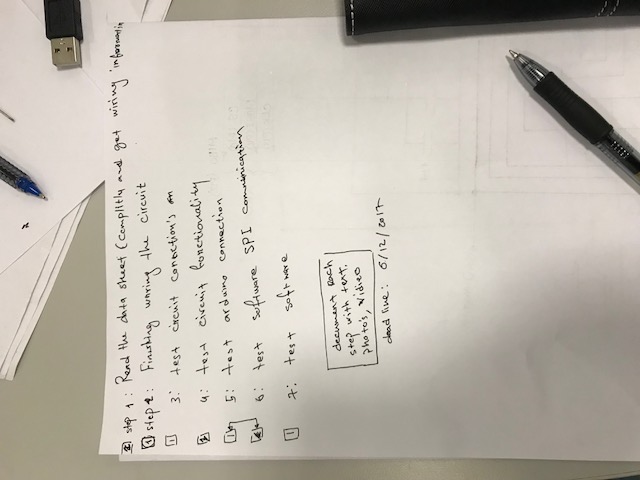 2 step 1: Read the data sheet (complitly and get wiring information
1 step 2: Finishing wiring the circuit
1 3: test circuit conection's
4: test circuit fonctionality
1 5: test arduino connection
6: test software SPI commonication
1 7: test software
document each
step with text,
photo's, vidieo
dead line: 6/12/2017